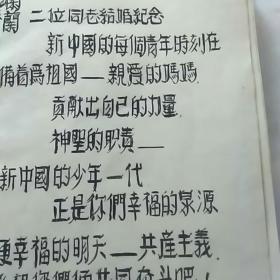 蘭 二位同志結婚紀念
新中國的每個青年時刻在
備着爲祖國——親爱的媽媽
貢献出自己的力量
神聖的职責——
新中國的少年一代
正是你們幸福的泉源
幸福的明天——共産主義
你們俩共同奋斗吧！